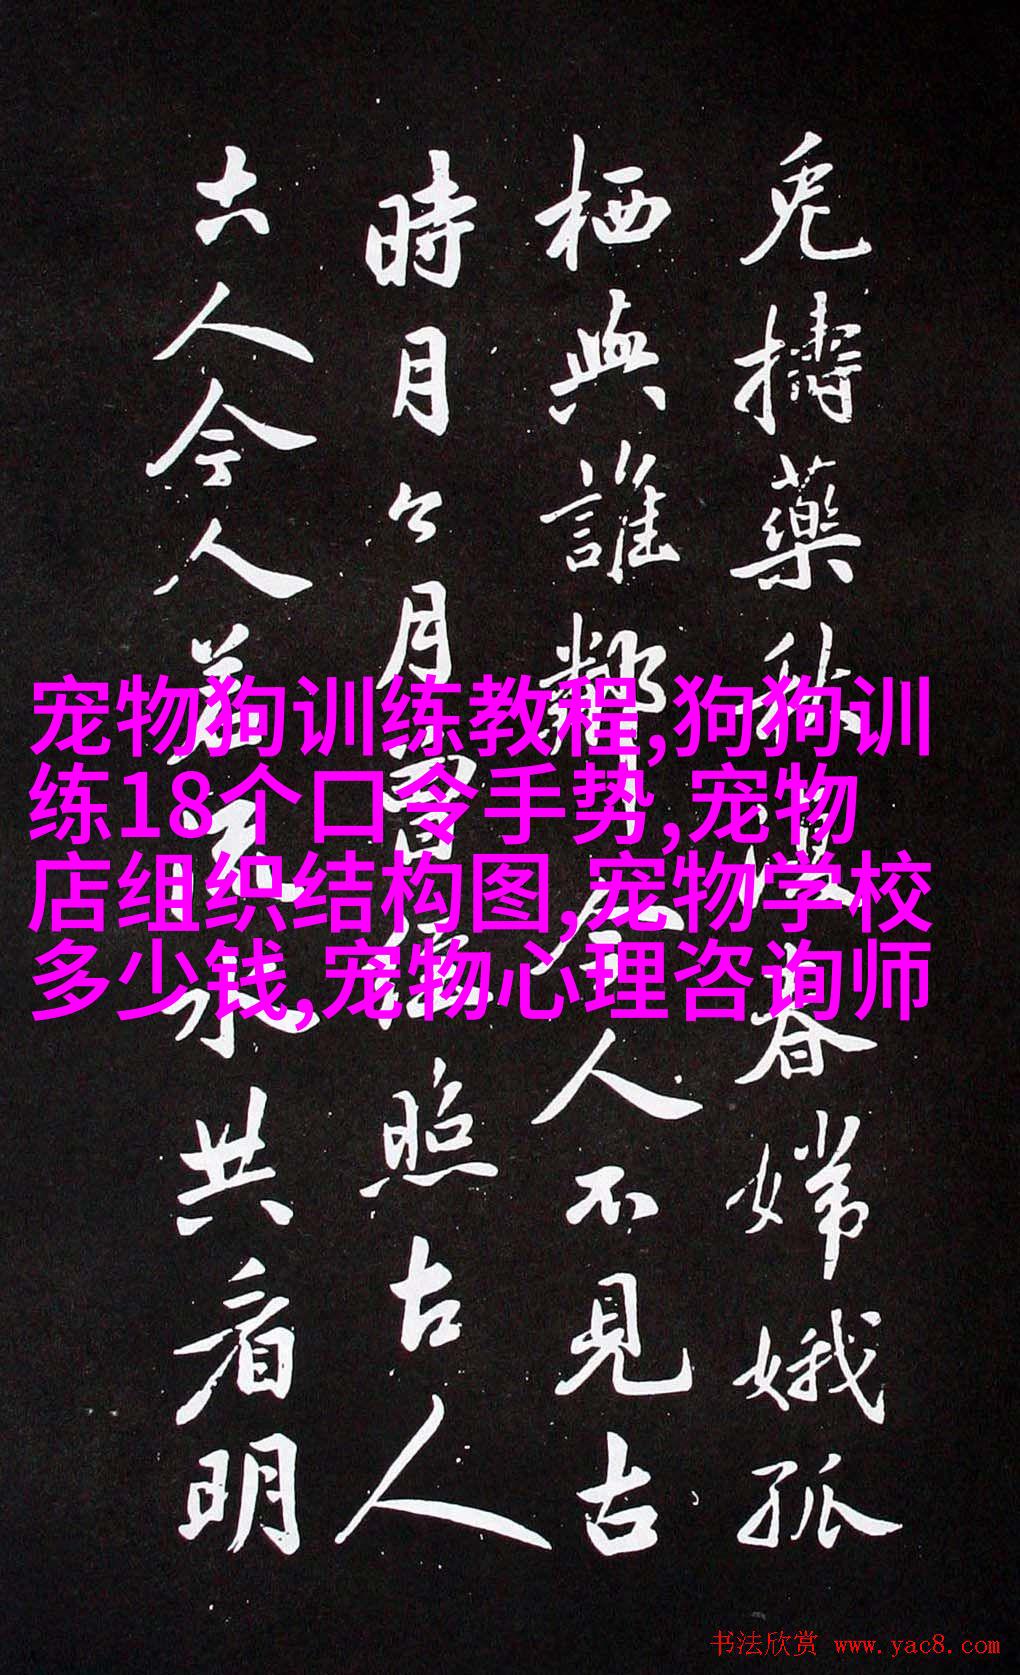 兔擣藥秋復春嫦娥孤
栖與誰鄰今人不見古
時月今月曾經照古人
古人今人若流水共看明
宠物狗训练教程,狗狗训
练18个口令手势,宠物
店组织结构图,宠物学校
多少钱,宠物心理咨询师
书法欣赏 www.yac8.com